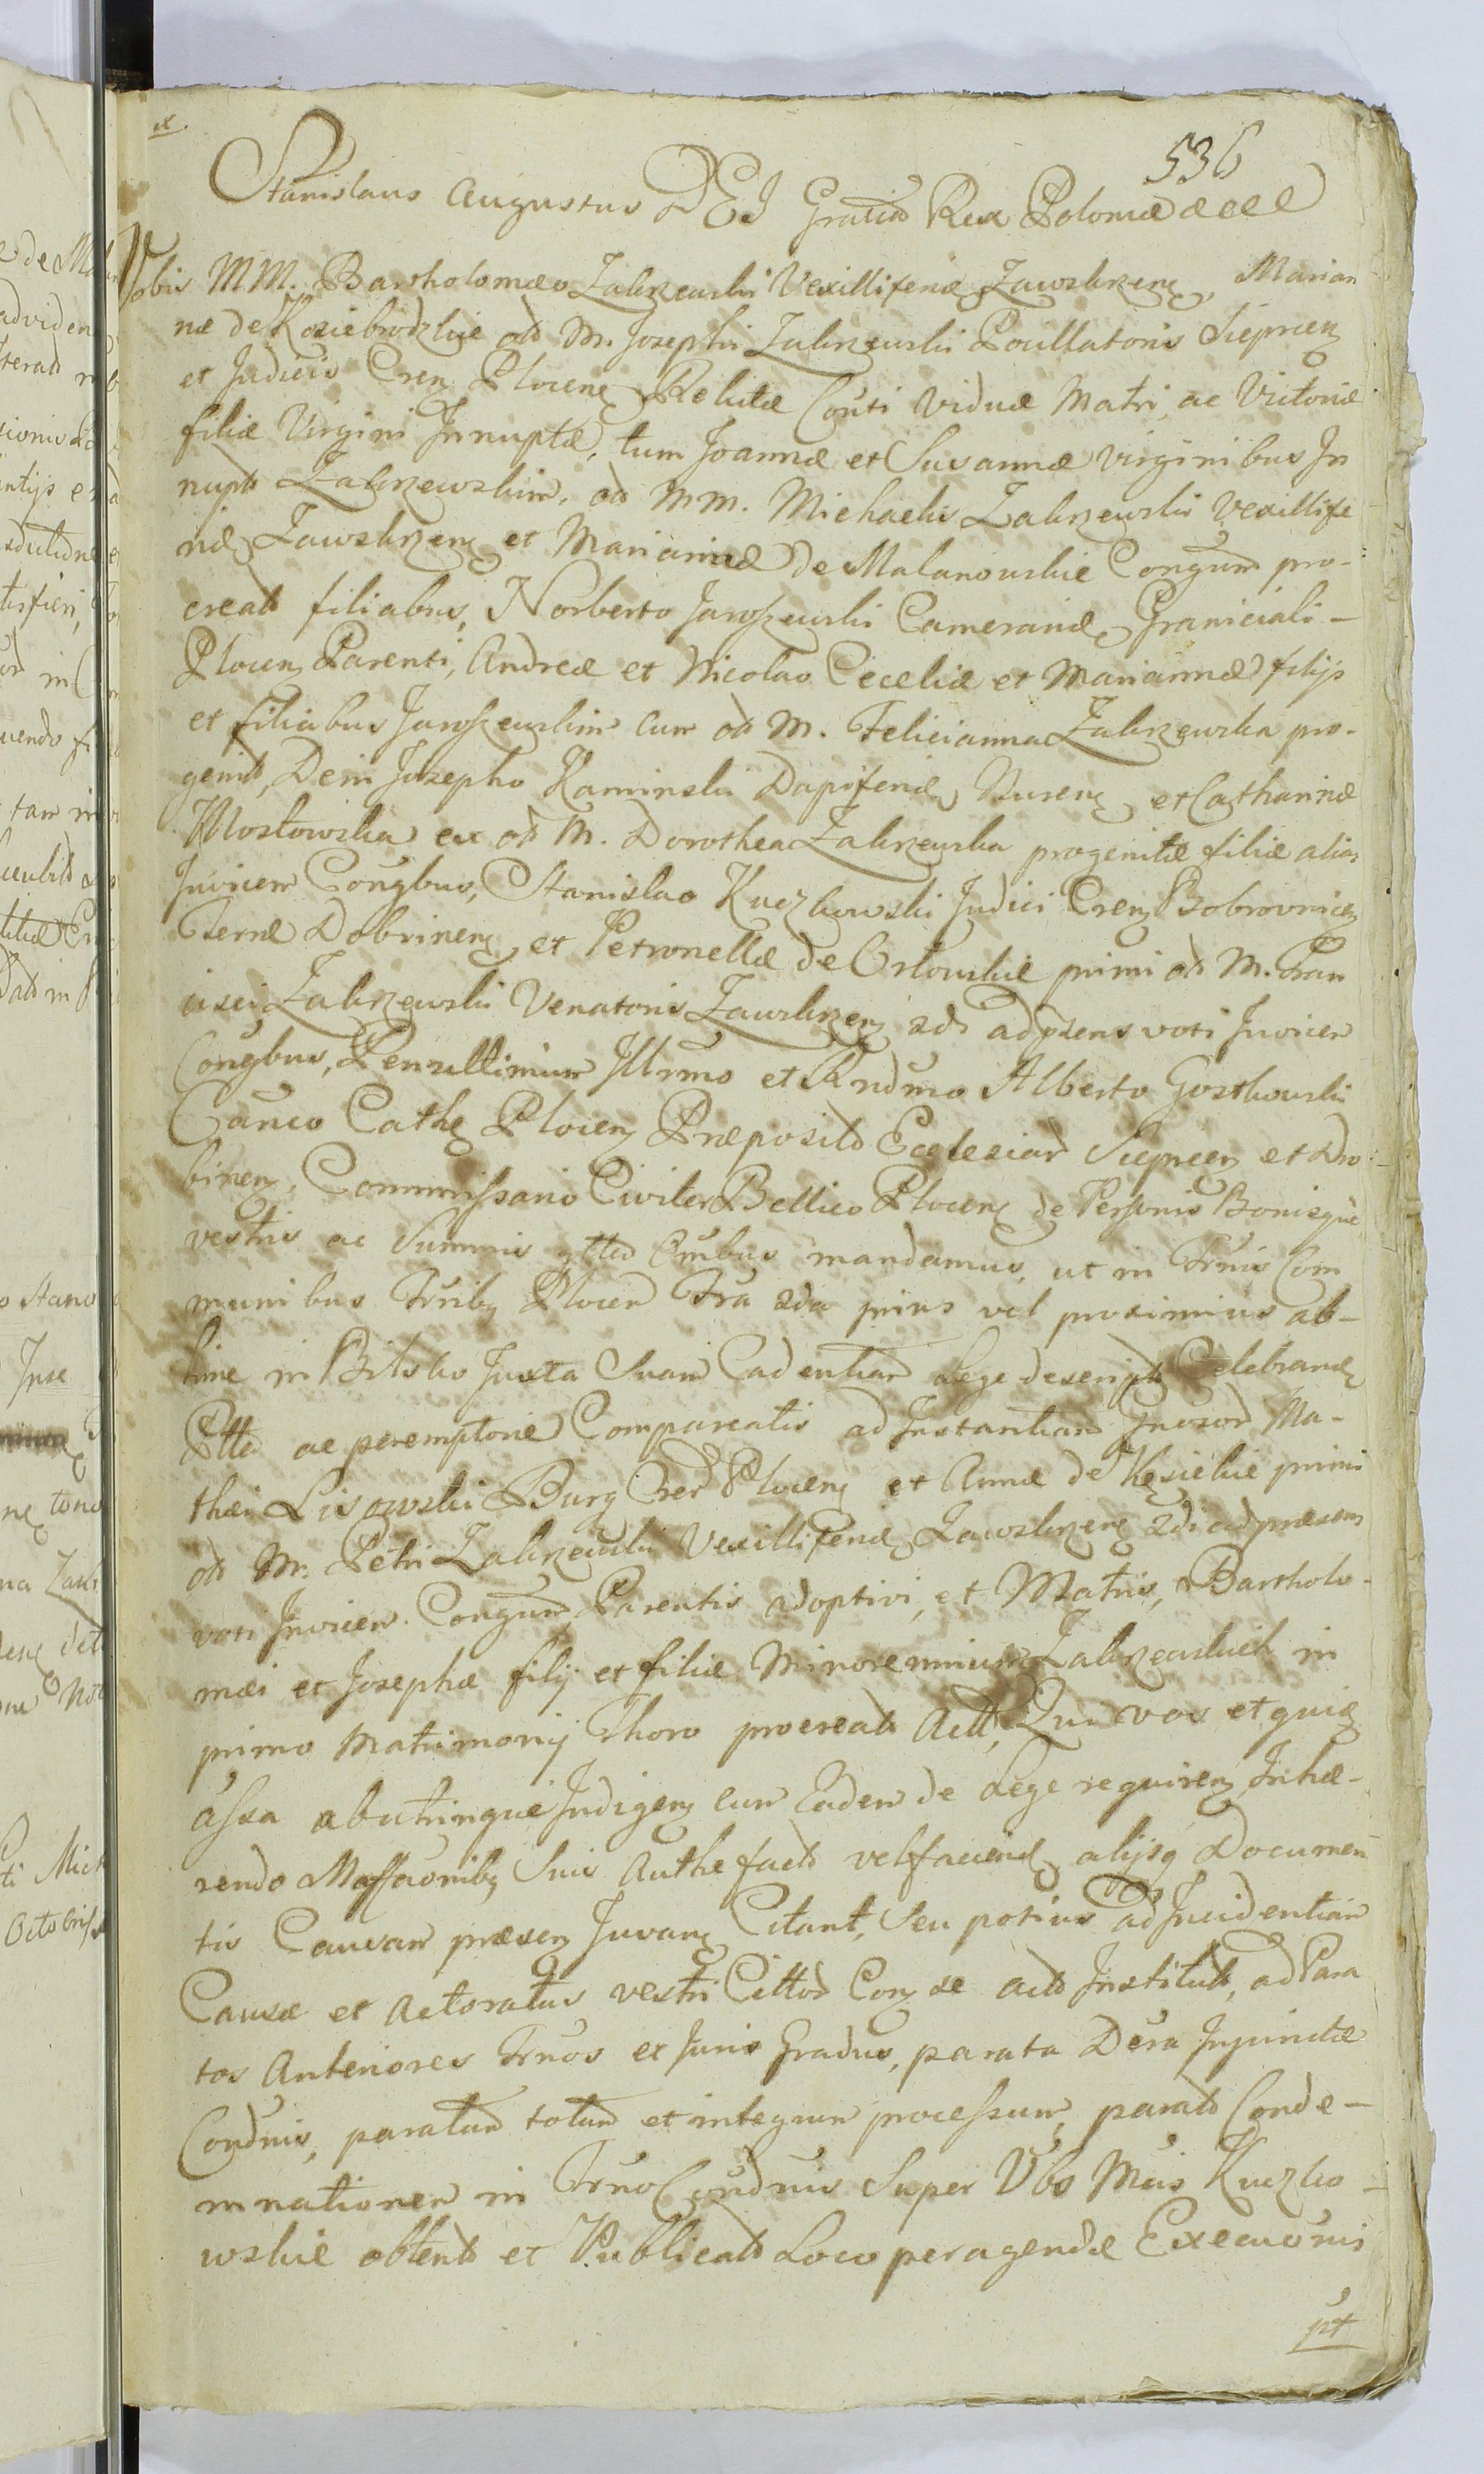 536
Stanislaus Augustus DEI Gratia Rex Poloniæ
Vobis MM. Bartholomæo Zakrzewski Vexilliferidæ Zawskrzen, Marian
næ de Kosiebrodzkie ol M. Josephi Zakrzewski Pocillatoris Sieprcen
et Judicis Cren Plocen Relictæ Consti Viduæ Matri, ac Victoriæ
filiæ Virgini Innuptæ, tum Joannæ et Susannæ virginibus In
nupt Zakrzewskim, ol MM. Michaelis Zakrzewski Vexillife
ridæ Zawskrzen et Mariannæ de Malanowskie Congum pro-
creat filiabus, Norberto Jaroszewski Cameraridæ Graniciali -
Plocen Parenti, Andreæ et Nicolao Ceceliæ et Mariannæ filijs
et filiabus Jaroszewskim cum ol M. Felicianna Zakrzewska pro-
genit, Dein Josepho Kaminski Dapiferidæ Buscen et Catharinæ
Mostowska ex ol M. Dorothea Zakrzewska progenitæ filiæ alias
Invicem Congbus, Stanislao Kuczkowski Judici Cren Bobrovnicen
Terræ Dobrinen et Petronellæ de Orłowskie primi ol M. Fran
cisci Zakrzewski Venatoris Zawskrzen 2di adpræns voti Invicem
Congbus, Penultimum Illrmo et Rndmo Alberto Gosthowski
Canco Cathe Plocen Præposito Ecclesiar Sieprcen et Dro
binen, Commissario Civiler Bellico Plocen de Personis Bonisque
vestris ac Summis gttd Ombus mandamus, ut in Trnis Com
munibus Trribus Plocen Tra 2da prius vel proximius ab-
hinc in Bilsko Juxta Suam Cadentiam Lege descript Celebrand
Pltr ac peremptorie Compareatis ad Instantiam Gnosor Ma-
thæi Lisowski Burg Cren Plocen et Annæ de Kęsickie primi
ol M. Petri Zakrzewski Vexilliferidæ Zawskrzen 2di adpræsens
voti Invicem Congum Parentis adoptivi, et Matris, Bartholo-
mæi et Josephæ filij et filiæ Minorennium Zakrzewskich in
primo Matrimonij Thoro procreat Actt, Qui vos et quia
assa abutrinque Indigen cum Eadem de Lege requiren Inhæ-
rendo Massaonibus Suis Authe fact vel faciend alijsq Documen
tis Causam præsen Juvan Citant, Seu potius ad Incidentiam
Causæ et Actoratus vestri Cittod Con se acto Institut, ad Para
tos Anteriores Trnos et Juris Gradus, parata Dcra Injunctæ
Condnis, paratum totum et integrum processum, parat Conde-
mnationem in Trno Condnis Super Vbs Mcis Kuczko-
wskie obtent et Publicat Loco peragendæ Execuonis
pt